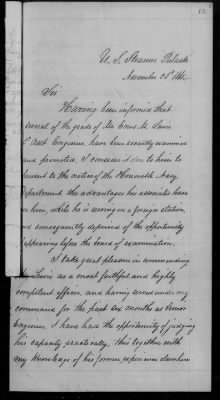 12.
U. S. Steamer Pulaski
November 28th 186
Sir
Having been informed that
several of the grade of Mr Enos M. Lewis
3d Asst Engineer, have been recently examined
and promoted, I consider it due to him to
present to the notice of the Honorable Navy
Department the advantages his associates have
on him, while he is serving on a foreign station,
and consequently deprived of the opportunity
of appearing before the board of examination.
I take great pleasure in commending
as a most faithful and highly
competent officer, and having served under my
command for the past six months as Senior
Engineer, I have had the opportunity of judging
his capacity practically. This together with
my knowledge of his former experience elsewhere